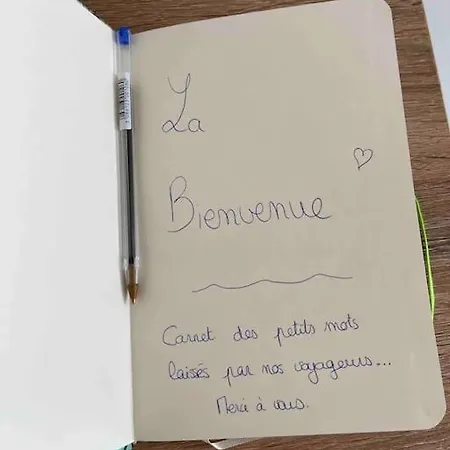 La
Bienvenue
Carnet des petits mots
laissés par nos voyageurs...
Merci à vous.